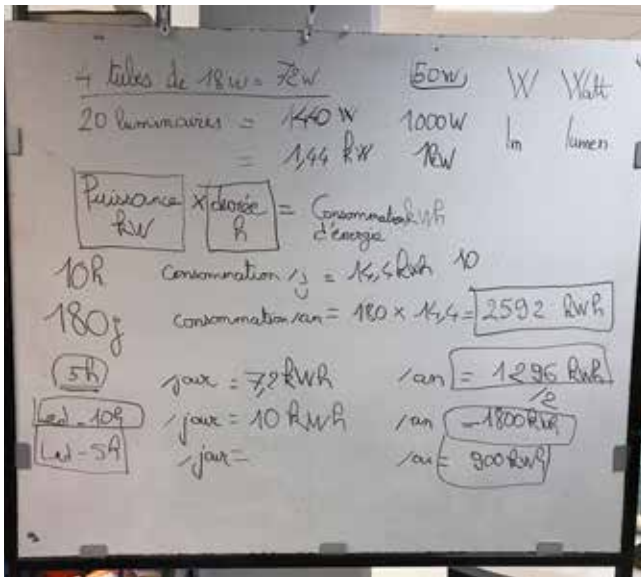 4 tubes de 18w = 72w 50w W Watt
20 luminaires = 1440 w 1000W lm lumen
= 1,44 kW 1kW
Puissance kW × durée h = Consommation d'énergie kWh
10h consommation /j = 14,4 kWh 10
180j consommation/an = 180 × 14,4 = 2592 kWh
5h jour = 7,2 kWh /an = 1296 kWh
/2
Led - 10h /jour = 10 kWh /an = 1800 kWh
Led - 5h /jour = /an = 900 kWh